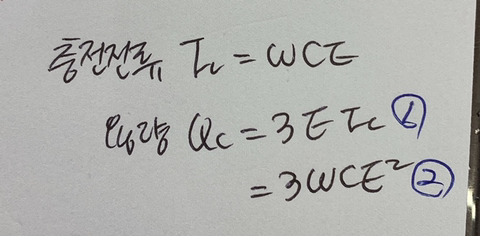 충전전류 Ic = ωCE
용량 Qc = 3EIc ①
= 3ωCE² ②